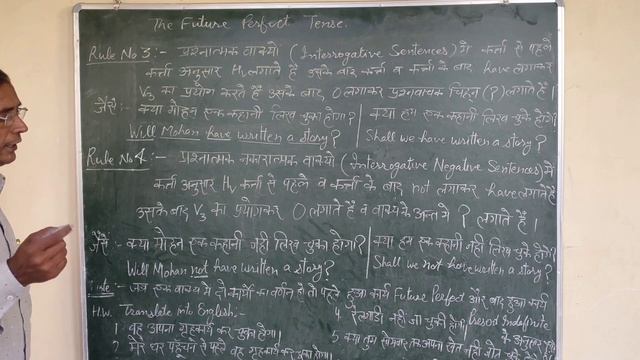 The Future Perfect Tense.
Rule No 3:- प्रश्नात्मक वाक्यों (Interrogative Sentences) में कर्त्ता से पहले
कर्त्ता अनुसार Hv लगाते हैं उसके बाद कर्त्ता व कर्त्ता के बाद have लगाकर
V3 का प्रयोग करते हैं उसके बाद, O लगाकर प्रश्नवाचक चिह्न (?) लगाते हैं।
जैसे:- क्या मोहन एक कहानी लिख चुका होगा? क्या हम एक कहानी लिख चुके होंगे?
Will Mohan have written a story? Shall we have written a story?
Rule No 4:- प्रश्नात्मक नकारात्मक वाक्यों (Interrogative Negative Sentences) में
कर्त्ता अनुसार Hv कर्त्ता से पहले व कर्त्ता के बाद not लगाकर have लगाते हैं
उसके बाद V3 का प्रयोगकर O लगाते हैं व वाक्य के अन्त में ? लगाते हैं।
जैसे:- क्या मोहन एक कहानी नहीं लिख चुका होगा? क्या हम एक कहानी नहीं लिख चुके होंगे?
Will Mohan not have written a story? Shall we not have written a story?
जब एक वाक्य में दो कार्यों का वर्णन हो तो पहले हुआ कार्य Future Perfect और बाद हुआ कार्य
Indefinite के अनुसार
H.W. Translate into English:-
1. वह अपना गृहकार्य कर चुका होगा।
2. मेरे घर पहुंचने से पहले वह गृहकार्य कर चुका होगा।
4. रेलगाड़ी नहीं जा चुकी होगी।
5. क्या तुम सोमवार तक अपना